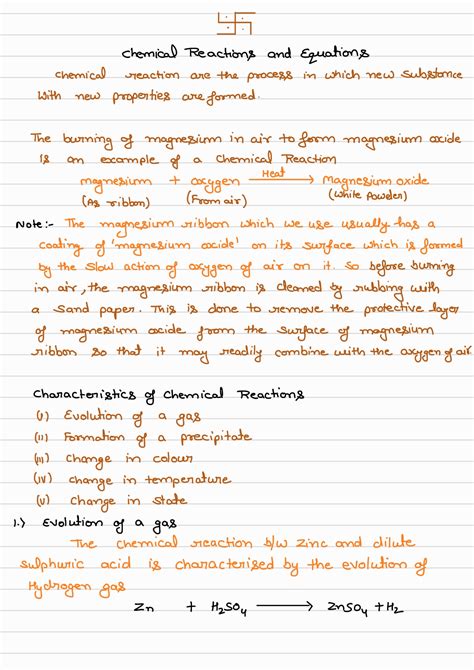 Chemical Reactions and Equations
Chemical reaction are the process in which new substance
With new properties are formed.
The burning of magnesium in air to form magnesium oxide
is an example of a Chemical Reaction
magnesium + oxygen Heat → Magnesium oxide
(As ribbon) (From air) (White Powder)
Note:- The magnesium ribbon which we use usually has a
coating of 'magnesium oxide' on its surface which is formed
by the slow action of oxygen of air on it. So before burning
in air, the magnesium ribbon is cleaned by rubbing with
a sand paper. This is done to remove the protective layer
of magnesium oxide from the surface of magnesium
ribbon so that it may readily combine with the oxygen of air.
Characteristics of Chemical Reactions
(I) Evolution of a gas
(II) Formation of a precipitate
(III) Change in colour
(IV) change in temperature
(V) Change in state
1.) Evolution of a gas
The chemical reaction b/w Zinc and dilute
sulphuric acid is characterised by the evolution of
Hydrogen gas
Zn + H₂SO₄ → ZnSO₄ + H₂